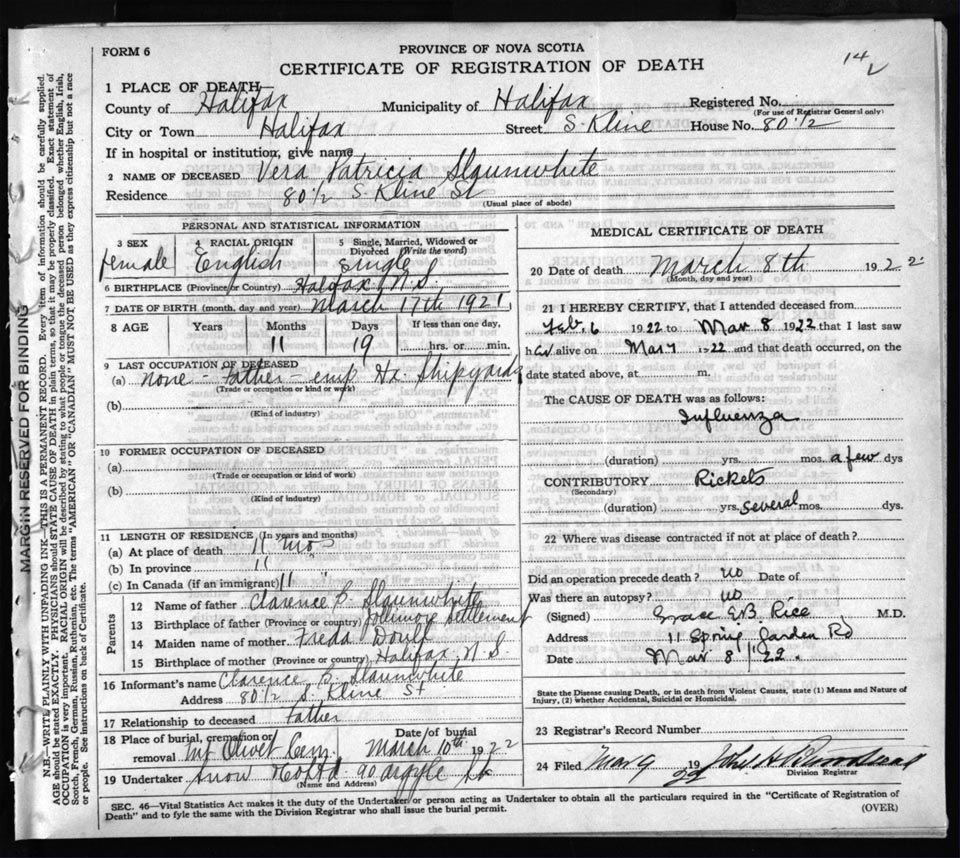 FORM 6
PROVINCE OF NOVA SCOTIA
CERTIFICATE OF REGISTRATION OF DEATH
14
1 PLACE OF DEATH
County of Halifax Municipality of Halifax Registered No.
(For use of Registrar General only)
City or Town Halifax Street S. Kline House No. 80 1/2
If in hospital or institution, give name
2 NAME OF DECEASED Vera Patricia Slaunwhite
Residence 80 1/2 S. Kline St
(Usual place of abode)
PERSONAL AND STATISTICAL INFORMATION
3 SEX 4 RACIAL ORIGIN 5 Single, Married, Widowed or Divorced (Write the word)
Female English Single
6 BIRTHPLACE (Province or Country) Halifax N.S.
7 DATE OF BIRTH (month, day and year) March 17th 1921
8 AGE Years Months Days If less than one day,
11 19 hrs. or min.
9 LAST OCCUPATION OF DECEASED
(a) none - Father - emp Hx Shipyards
(Trade or occupation or kind of work)
(b)
(Kind of industry)
10 FORMER OCCUPATION OF DECEASED
(a)
(Trade or occupation or kind of work)
(b)
(Kind of industry)
11 LENGTH OF RESIDENCE (In years and months)
(a) At place of death 11 mos
(b) In province 11 "
(c) In Canada (if an immigrant) 11 "
Parents
12 Name of father Clarence P. Slaunwhite
13 Birthplace of father (Province or country) Settlement
14 Maiden name of mother Freda Doull
15 Birthplace of mother (Province or country) Halifax N.S.
16 Informant's name Clarence P. Slaunwhite
Address 80 1/2 S. Kline St
17 Relationship to deceased Father
18 Place of burial, cremation or removal Mt Olivet Cem. Date of burial March 10th 1922
19 Undertaker Snow & Co Ltd 90 Argyle St
(Name and Address)
MEDICAL CERTIFICATE OF DEATH
20 Date of death March 8th 1922
(Month, day and year)
21 I HEREBY CERTIFY, that I attended deceased from
Feb. 6 1922 to Mar 8 1922 that I last saw
her alive on Mar 7 1922 and that death occurred, on the
date stated above, at m.
The CAUSE OF DEATH was as follows:
Influenza
(duration) yrs. mos. a few dys
CONTRIBUTORY Rickets
(Secondary)
(duration) yrs. several mos. dys.
22 Where was disease contracted if not at place of death?
Did an operation precede death? no Date of
Was there an autopsy? no
(Signed) Grace E.B. Rice M.D.
Address 11 Spring Garden Rd
Date Mar. 8 22.
State the Disease causing Death, or in death from Violent Causes, state (1) Means and Nature of
Injury, (2) whether Accidental, Suicidal or Homicidal.
23 Registrar's Record Number
24 Filed Mar 9 19 22 John H
Division Registrar
SEC. 46—Vital Statistics Act makes it the duty of the Undertaker or person acting as Undertaker to obtain all the particulars required in the "Certificate of Registration of
Death" and to fyle the same with the Division Registrar who shall issue the burial permit.
(OVER)
MARGIN RESERVED FOR BINDING
N.B.—WRITE PLAINLY WITH UNFADING INK—THIS IS A PERMANENT RECORD. Every item of information should be carefully supplied.
AGE should be stated EXACTLY. PHYSICIANS should STATE CAUSE OF DEATH in plain terms, so that it may be properly classified. Exact statement of
OCCUPATION is very important. RACIAL ORIGIN will be described by stating to what people or tongue the deceased person belonged whether English, Irish,
Scotch, French, German, Russian, Ruthenian, etc. The terms "AMERICAN" OR "CANADIAN" MUST NOT BE USED as they express citizenship but not a race
or people. See instructions on back of Certificate.